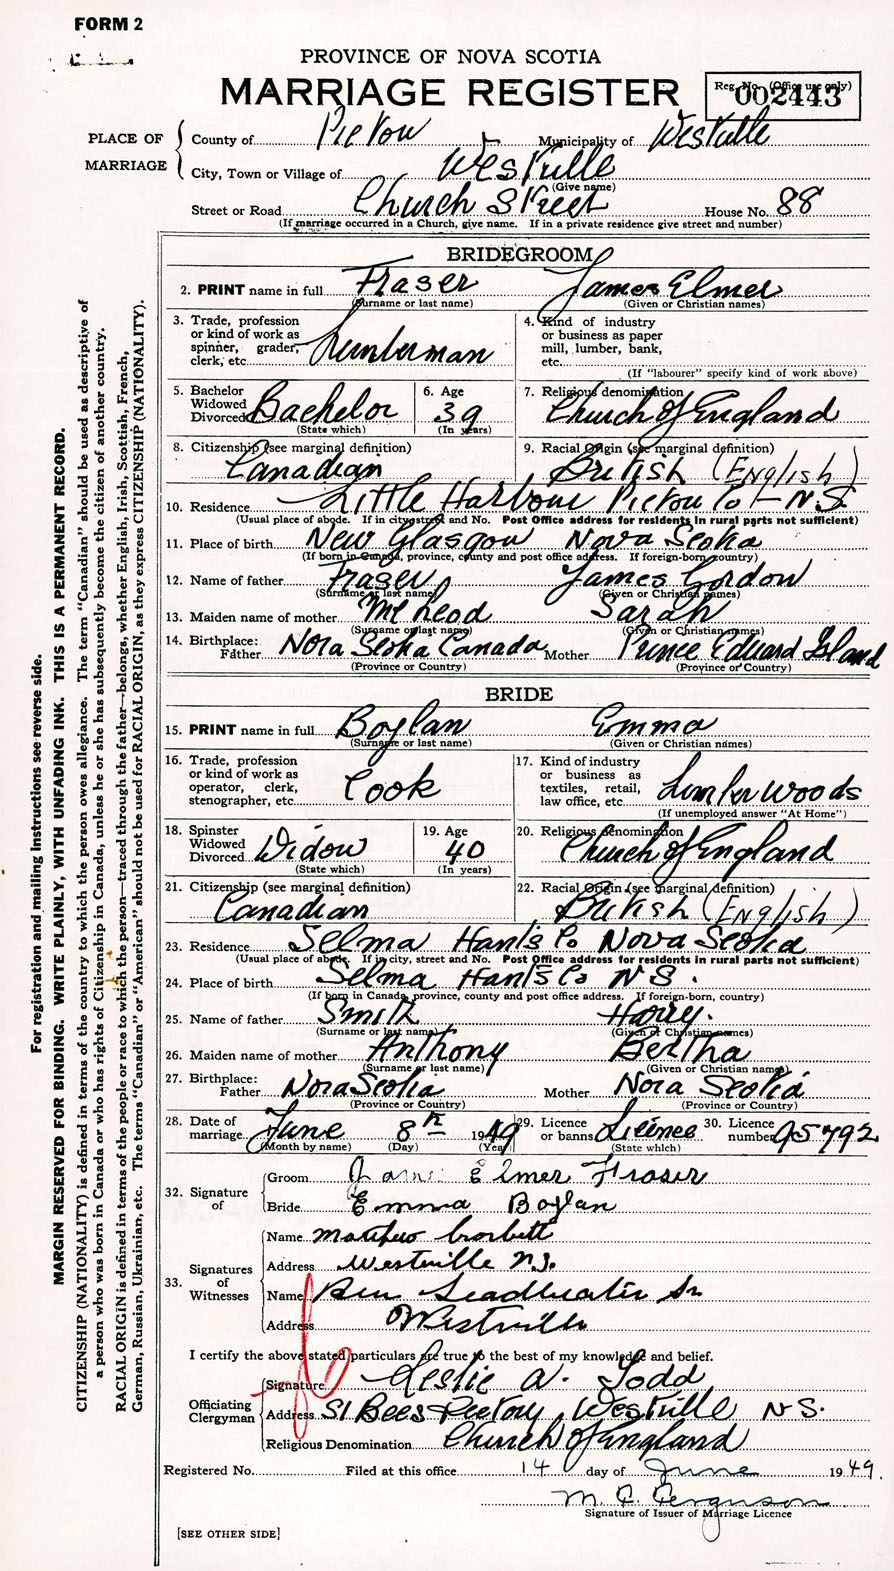 FORM 2
PROVINCE OF NOVA SCOTIA
MARRIAGE REGISTER
Reg. No. (Office use only)
002443
PLACE OF MARRIAGE
County of Pictou Municipality of Westville
City, Town or Village of Westville
(Give name)
Street or Road Church Street House No. 88
(If marriage occurred in a Church, give name. If in a private residence give street and number)
BRIDEGROOM
2. PRINT name in full Fraser James Elmer
(Surname or last name) (Given or Christian names)
3. Trade, profession or kind of work as spinner, grader, clerk, etc. Lumberman
4. Kind of industry or business as paper mill, lumber, bank, etc.
(If "labourer" specify kind of work above)
5. Bachelor Widowed Divorced Bachelor (State which)
6. Age 39 (In years)
7. Religious denomination Church of England
8. Citizenship (see marginal definition) Canadian
9. Racial Origin (see marginal definition) British (English)
10. Residence Little Harbour Pictou Co - N.S.
(Usual place of abode. If in city street and No. Post Office address for residents in rural parts not sufficient)
11. Place of birth New Glasgow Nova Scotia
(If born in Canada, province, county and post office address. If foreign-born, country)
12. Name of father Fraser James Gordon
(Surname or last name) (Given or Christian names)
13. Maiden name of mother McLeod Sarah
(Surname or last name) (Given or Christian names)
14. Birthplace: Father Nova Scotia Canada Mother Prince Edward Island
(Province or Country) (Province or Country)
BRIDE
15. PRINT name in full Boylan Emma
(Surname or last name) (Given or Christian names)
16. Trade, profession or kind of work as operator, clerk, stenographer, etc. Cook
17. Kind of industry or business as textiles, retail, law office, etc. Lumber Woods
(If unemployed answer "At Home")
18. Spinster Widowed Divorced Widow (State which)
19. Age 40 (In years)
20. Religious denomination Church of England
21. Citizenship (see marginal definition) Canadian
22. Racial Origin (see marginal definition) British (English)
23. Residence Selma Hants Co Nova Scotia
(Usual place of abode. If in city, street and No. Post Office address for residents in rural parts not sufficient)
24. Place of birth Selma Hants Co N S.
(If born in Canada, province, county and post office address. If foreign-born, country)
25. Name of father Smith Harry.
(Surname or last name) (Given or Christian names)
26. Maiden name of mother Anthony Bertha
(Surname or last name) (Given or Christian name)
27. Birthplace: Father Nova Scotia Mother Nova Scotia
(Province or Country) (Province or Country)
28. Date of marriage June 8th 1949
(Month by name) (Day) (Year)
29. Licence or banns Licence (State which)
30. Licence number 95792
32. Signature of
Groom James Elmer Fraser
Bride Emma Boylan
33. Signatures of Witnesses
Name Matthew Corbett
Address Westville N.S.
Name Ben Leadbeater Sr
Address Westville
I certify the above stated particulars are true to the best of my knowledge and belief.
Officiating Clergyman
Signature Leslie A. Todd
Address St Bees Rectory, Westville N.S.
Religious Denomination Church of England
Registered No. Filed at this office 14 day of June 1949.
Signature of Issuer of Marriage Licence
[SEE OTHER SIDE]
For registration and mailing instructions see reverse side.
MARGIN RESERVED FOR BINDING. WRITE PLAINLY, WITH UNFADING INK. THIS IS A PERMANENT RECORD.
CITIZENSHIP (NATIONALITY) is defined in terms of the country to which the person owes allegiance. The term "Canadian" should be used as descriptive of
a person who was born in Canada or who has rights of Citizenship in Canada, unless he or she has subsequently become the citizen of another country.
RACIAL ORIGIN is defined in terms of the people or race to which the person—traced through the father—belongs, whether English, Irish, Scottish, French,
German, Russian, Ukrainian, etc. The terms "Canadian" or "American" should not be used for RACIAL ORIGIN, as they express CITIZENSHIP (NATIONALITY).